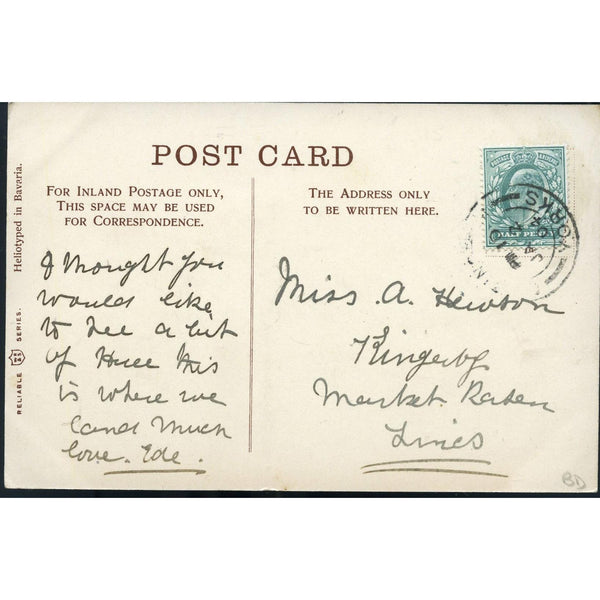 POST CARD
FOR INLAND POSTAGE ONLY,
THIS SPACE MAY BE USED
FOR CORRESPONDENCE.
THE ADDRESS ONLY
TO BE WRITTEN HERE.
RELIABLE SERIES. Heliotyped in Bavaria.
POSTAGE REVENUE
HALF PENNY
YORKS
I thought you
would like
to see a bit
of Hull this
is where we
land much
love. Ede.
Miss A. Hewson
Kingerby
Market Rasen
Lincs
BD